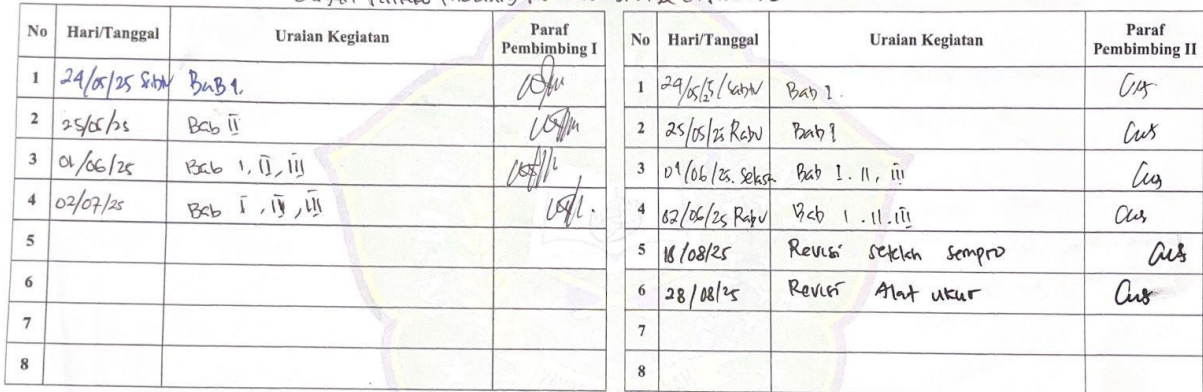 No Hari/Tanggal Uraian Kegiatan Paraf Pembimbing I
1 24/05/25 Sabtu BaB 1.
2 25/05/25 Bab II
3 01/06/25 Bab I, II, III
4 02/07/25 Bab I, II, III
5
6
7
8
No Hari/Tanggal Uraian Kegiatan Paraf Pembimbing II
1 24/05/25/Sabtu Bab 1.
2 25/05/25 Rabu Bab 1
3 01/06/25. Selasa Bab I. II, III
4 02/06/25 Rabu Bab I. II. III
5 18/08/25 Revisi setelah sempro
6 28/08/25 Revisi Alat ukur
7
8